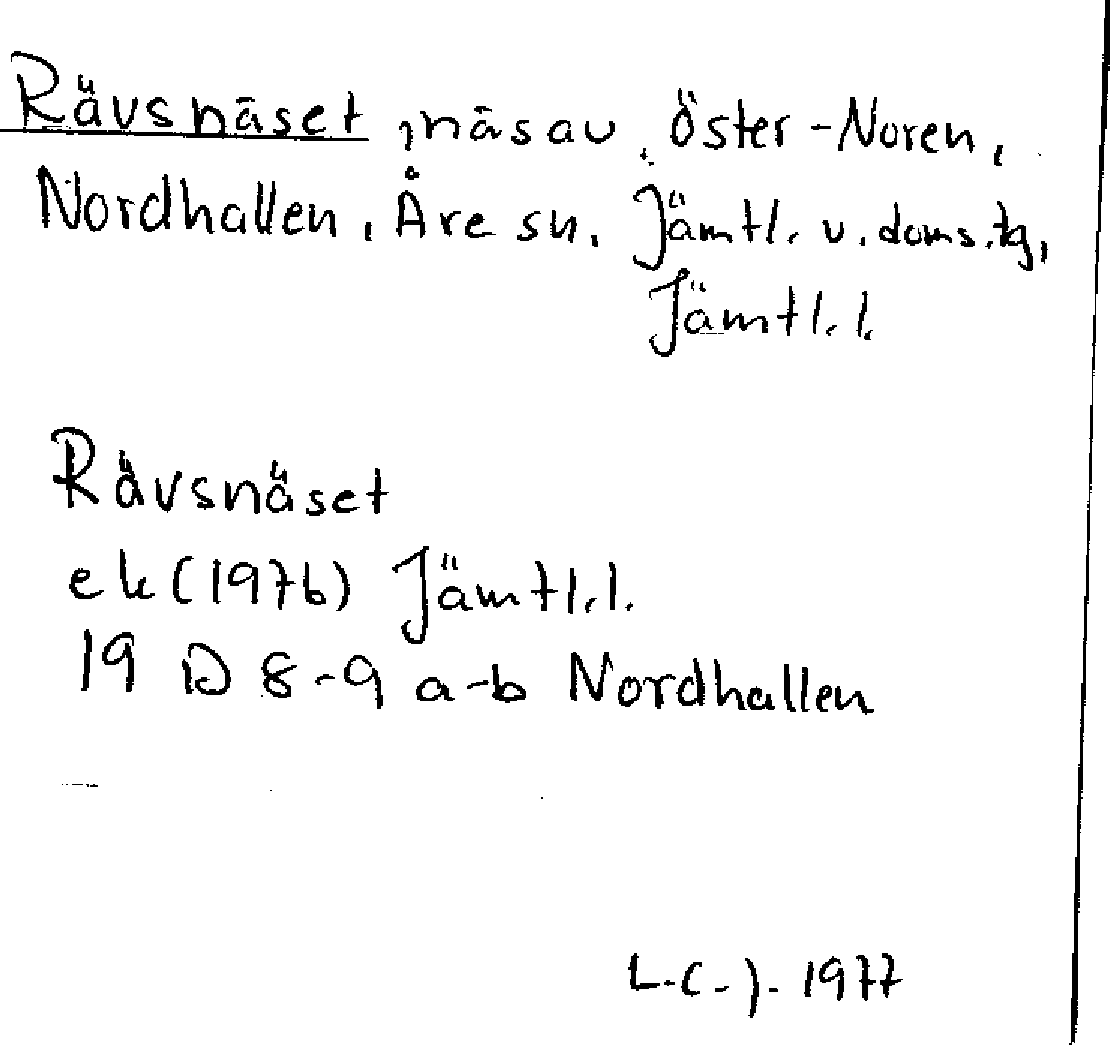 Rävsnäset, näs av Öster-Noren,
Nordhallen, Åre sn, Jämtl. v. doms.tg,
Jämtl.l.
Rävsnäset
ek (1976) Jämtl.l.
19 D 8-9 a-b Nordhallen
L.C.J. 1977